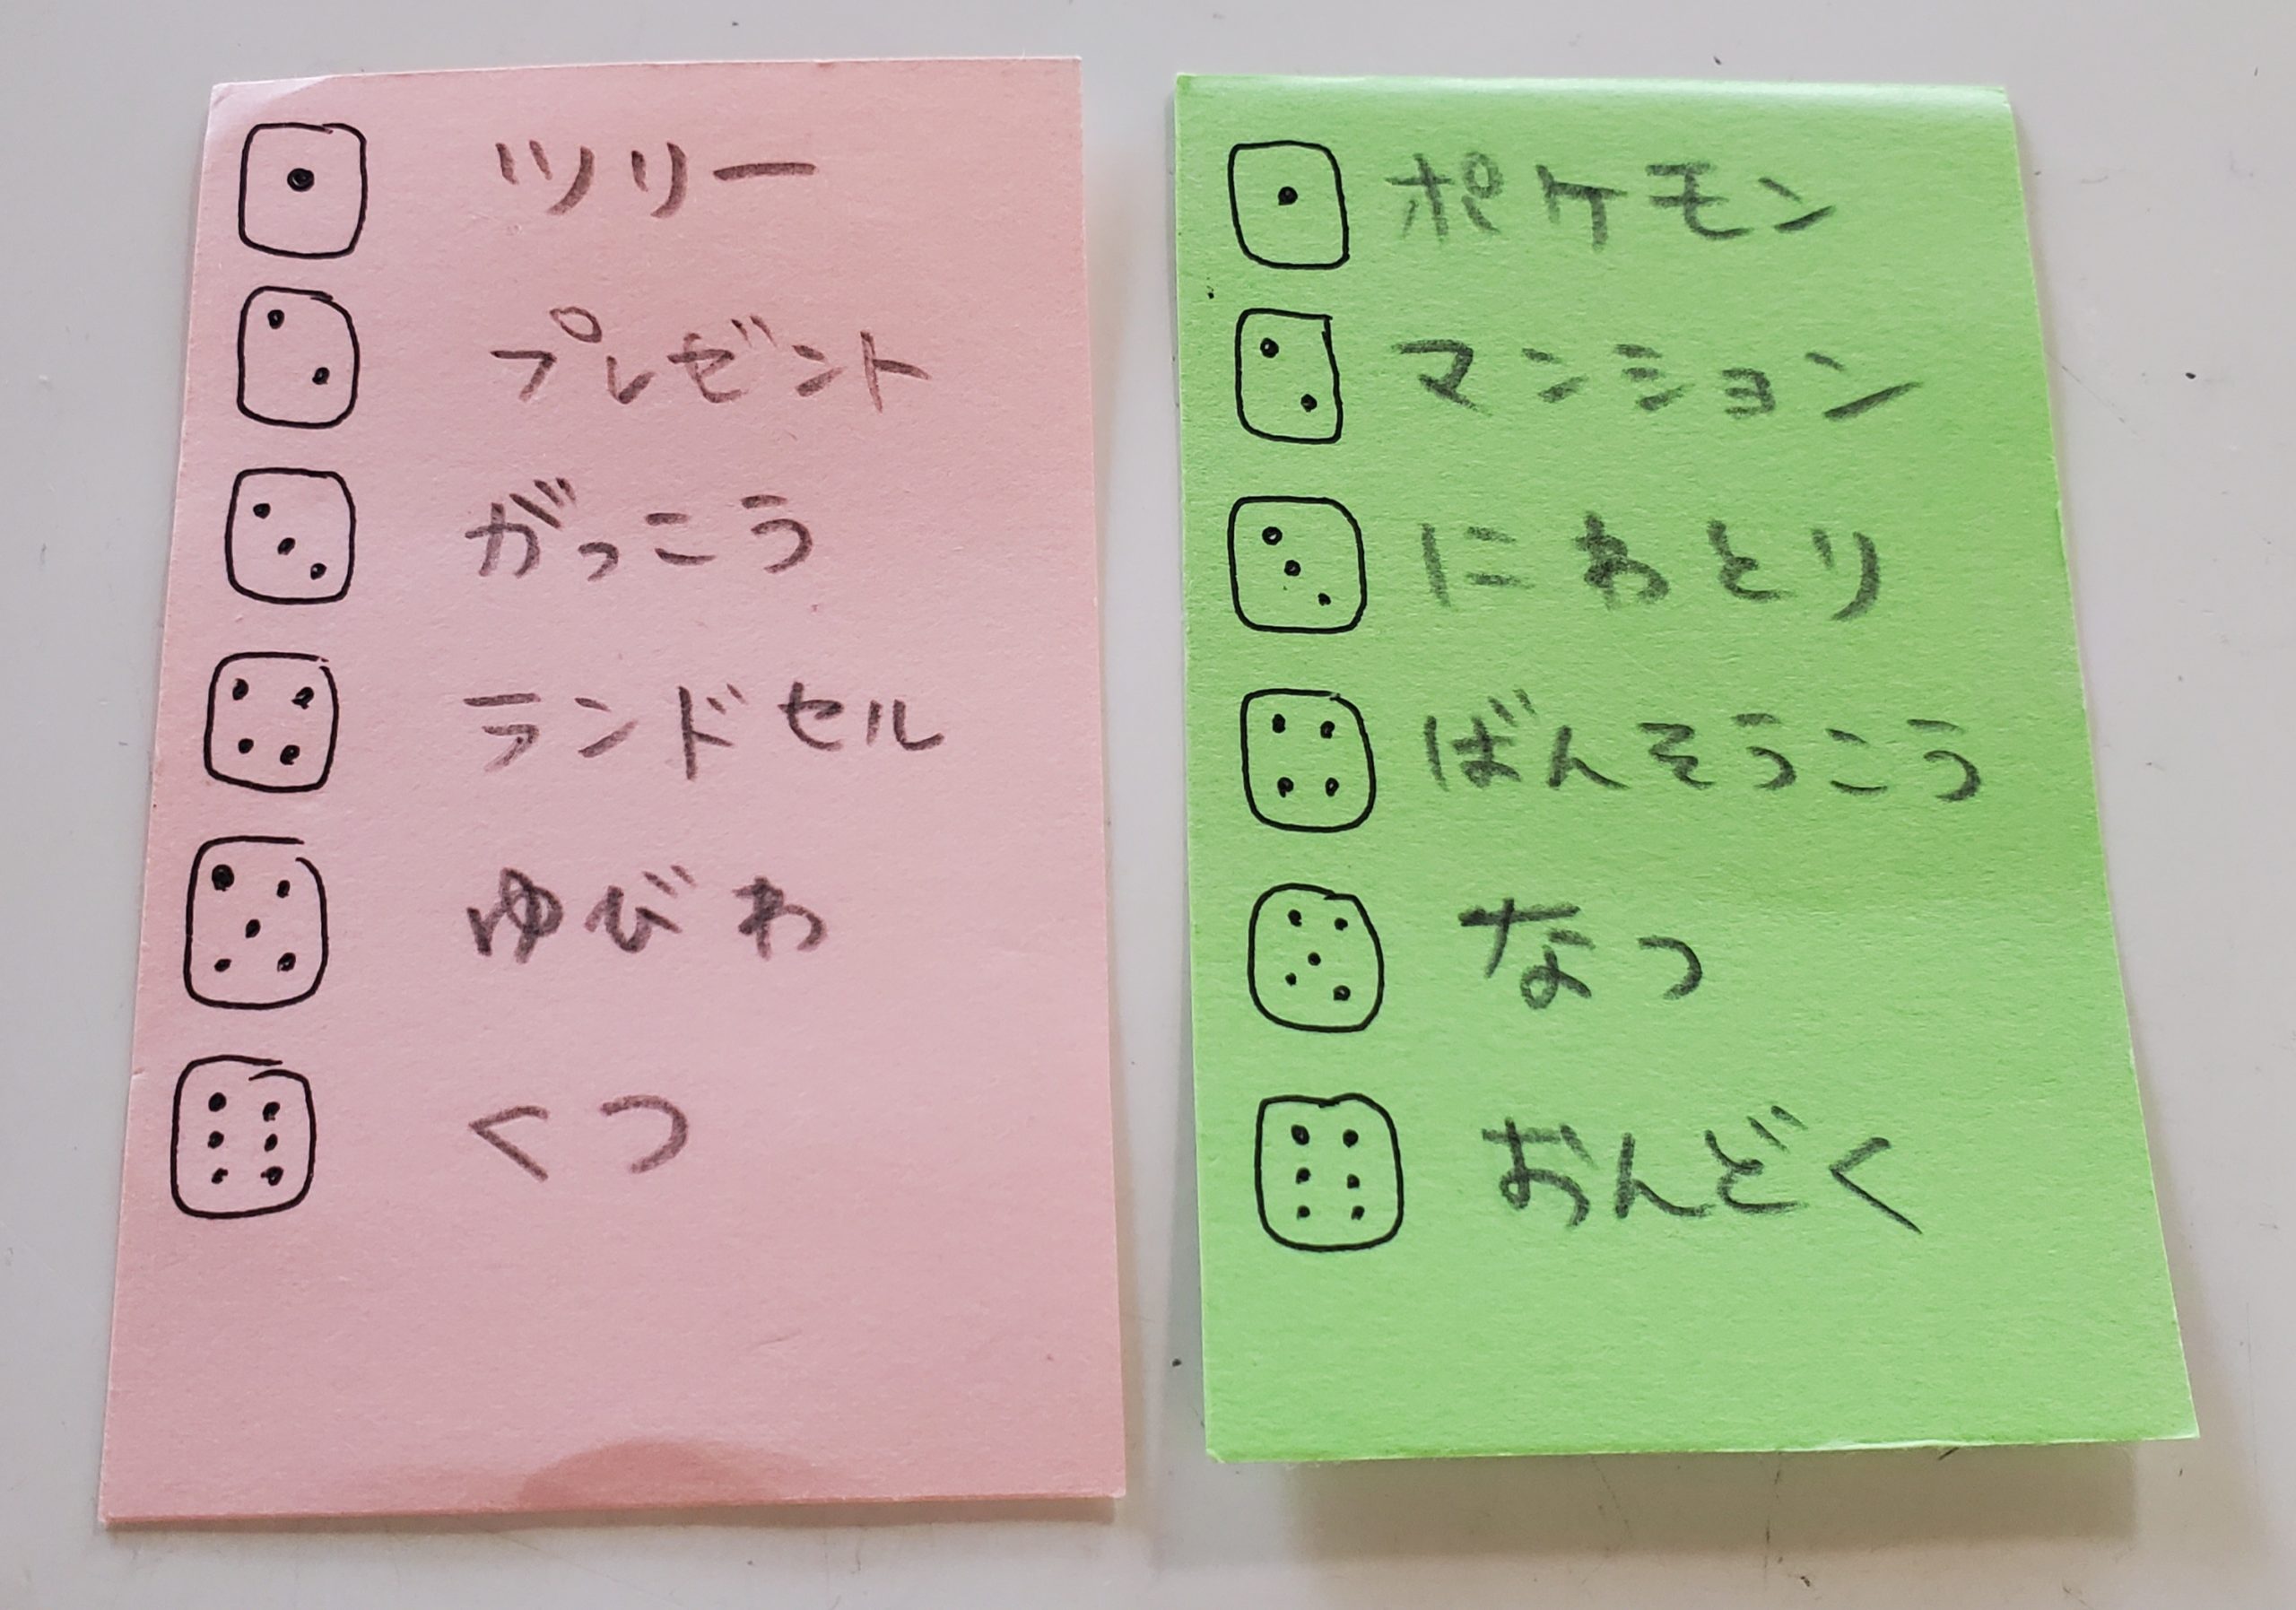 ツリー
プレゼント
がっこう
ランドセル
ゆびわ
くつ
ポケモン
マンション
にわとり
ばんそうこう
なつ
おんどく